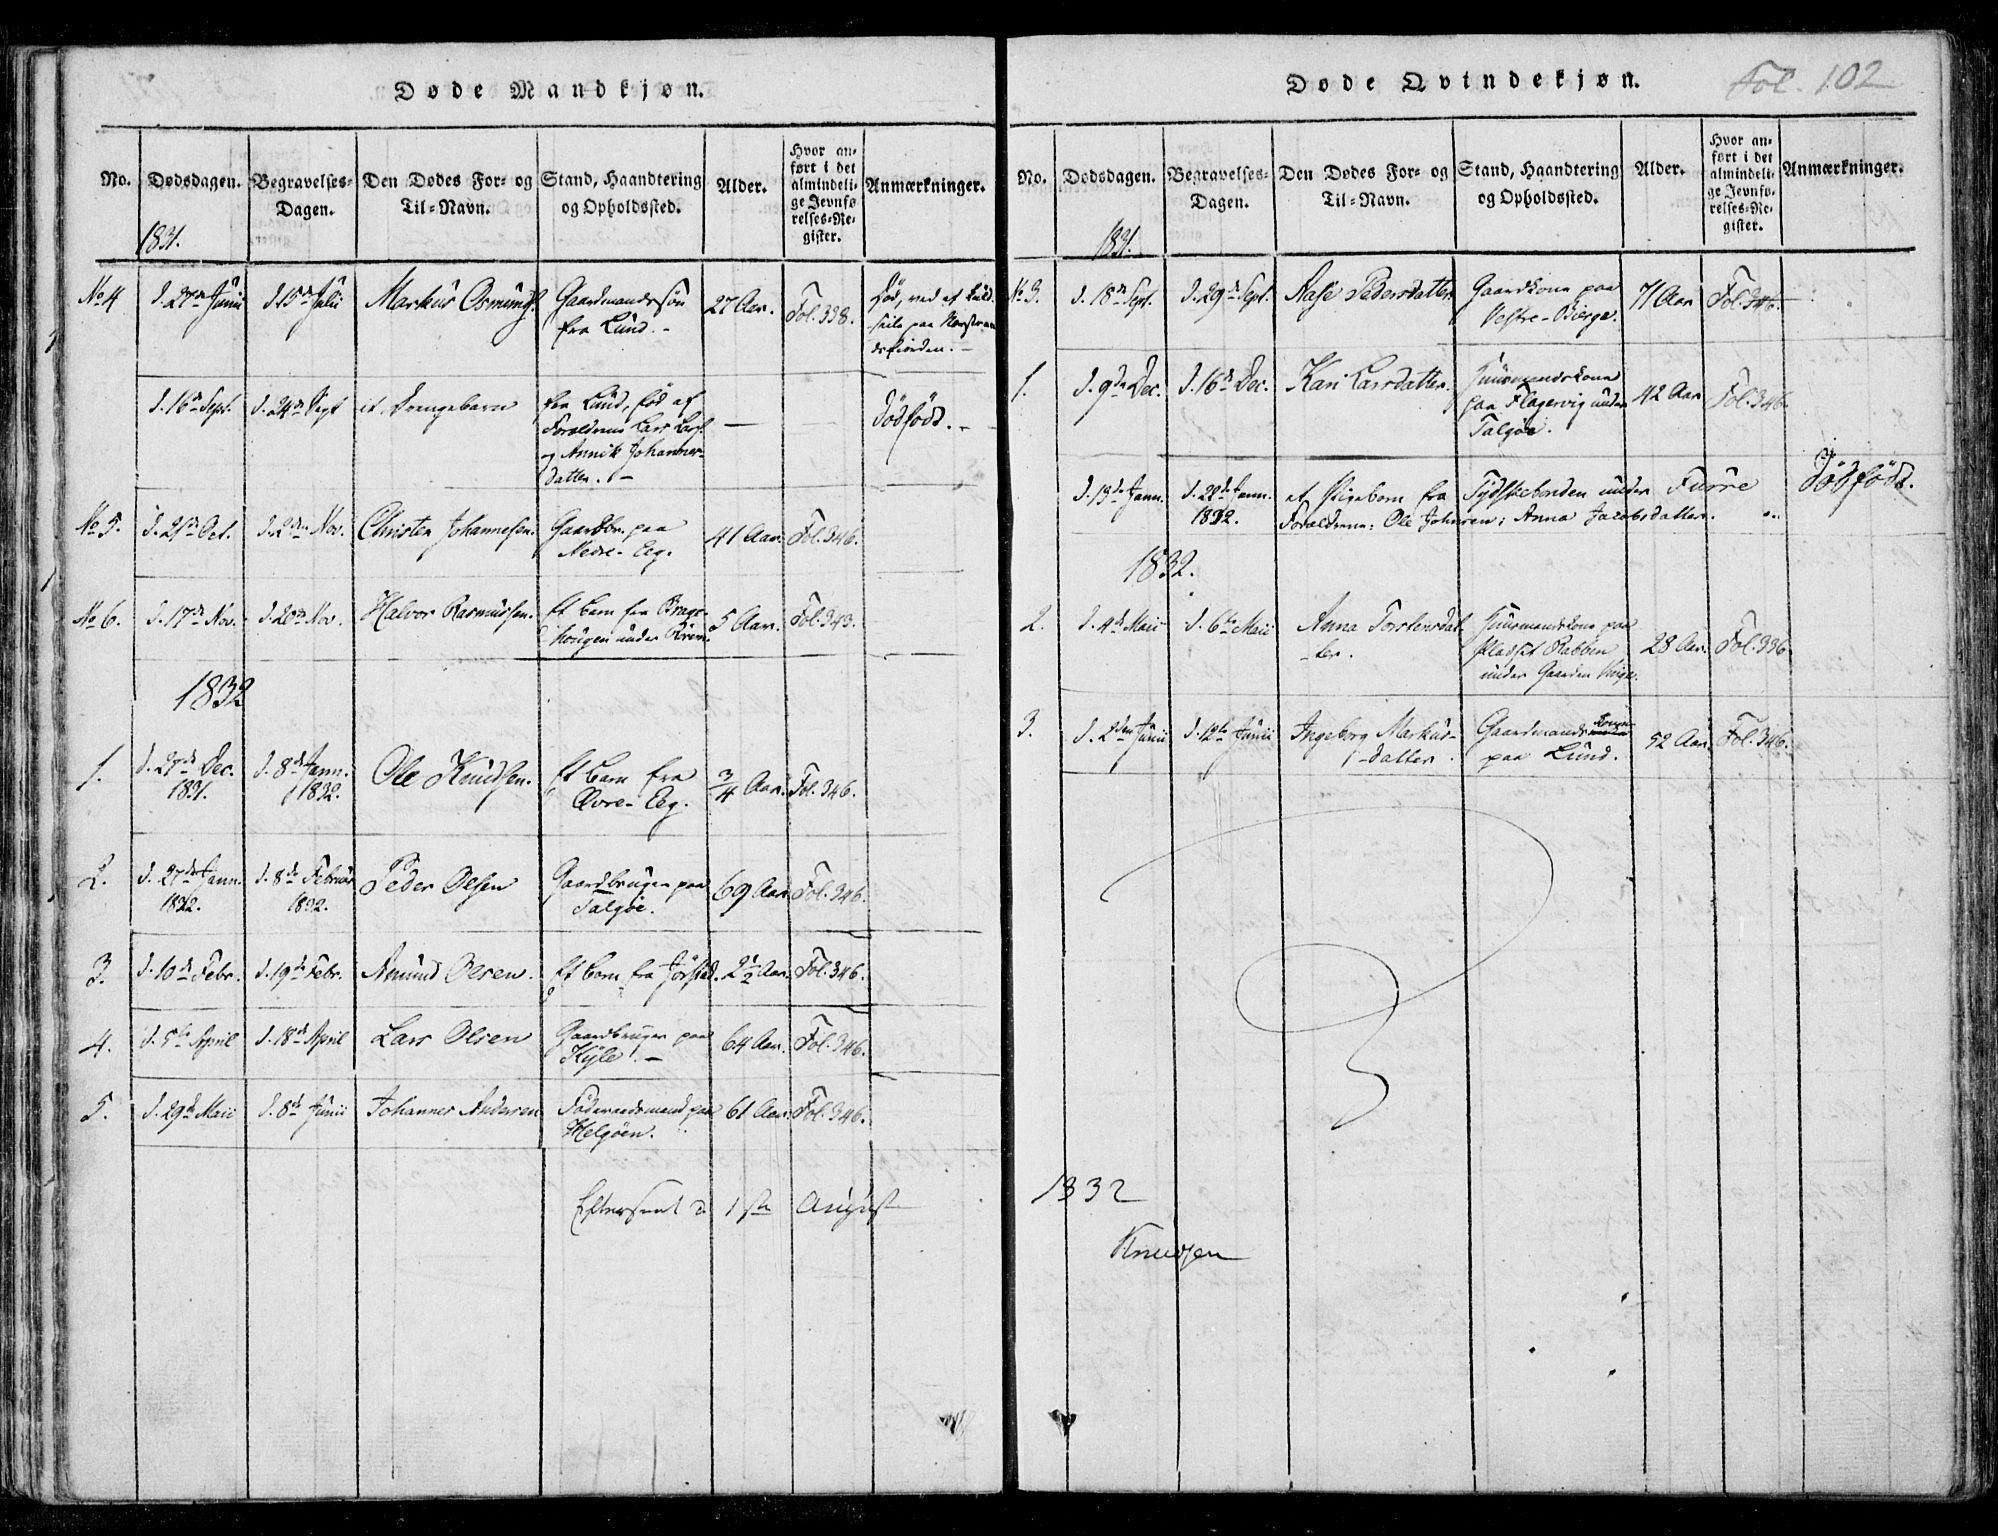 Døde Mandkjøn.
No. Dødsdagen. Begravelses-Dagen. Den Dødes For- og Til-Navn. Stand, Haandtering og Opholdssted. Alder. Hvor anført i det almindelige Jevnførelses-Register. Anmærkninger.
1831.
No 4 d. 27de Junii d. 15de Julii Markus Osmunds. Gaardmandssøn fra Lund. - 27 Aar. Fol. 338. Død, ved et
paa
d. 16de Sept. d. 24de Sept et Drengebarn fra Lund, fød af
Forældrene Lars Lars.
og Annik Johannes-
datter. - Dødfødt. -
No 5. d. 21de Oct. d. 2den Nov. Christen Johannesen. Gaardbr. paa
Nedre-Eeg. 41 Aar. Fol. 346.
No 6. d. 17de Nov. d. 20de Nov. Halvor Rasmussen. Et Barn fra
under 5 Aar. Fol. 343.
1832
1. d. 27de Dec.
1831. d. 8de Jann.
1832. Ole Knudsen. Et Barn fra
Øvre-Eeg. 3/4 Aar. Fol. 346.
2. d. 27de Jann.
1832. d. 8de Februar
1832. Peder Olsen Gaardbruger paa
Talgøe. 69 Aar Fol. 346.
3. d. 10de Febr. d. 19de Febr. Amund Olsen. Et Barn fra Jørstad. 2 1/2 Aar. Fol. 346.
4. d. 5te April d. 18de April Lars Olsen Gaardbruger paa
Kyle. - 64 Aar. Fol. 346.
5. d. 29de Maii d. 8de Junii Johannes Andersen Føderaadsmand paa
Helgøen. 61 Aar. Fol. 346.
Efterseet d. 1ste August
Døde Qvindekjøn.
Fol. 102
No. Dødsdagen. Begravelses-Dagen. Den Dødes For- og Til-Navn. Stand, Haandtering og Opholdssted. Alder. Hvor anført i det almindelige Jevnførelses-Register. Anmærkninger.
1831.
No 3. d. 18de Sept. d. 29de Sept. Aase Pedersdatter Gaardkone paa
Vestre-Bierge. 71 Aar Fol. 346.
1. d. 9de Dec. d. 16de Dec. Kari Larsdatter. Huusmandskone
paa Flagervig under
Talgøe. 42 Aar Fol. 346.
d. 13de Jann. d. 22de Jann.
1832. et Pigebarn fra Tydskebonden under Furre
Forældrene: Ole Johnsen; Anna Jacobsdatter. Dödfödt.
1832.
2. d. 4de Maii d. 6te Maii Anna Torstensdat-
-ter. Huusmandskone paa
Pladset Rabben
under Gaarden 28 Aar. Fol. 336
3. d. 2den Junii d. 12te Junii Ingeborg Markus-
-datter. Gaardmandskone
paa Lund. 52 Aar. Fol. 346.
1832
Knudsen